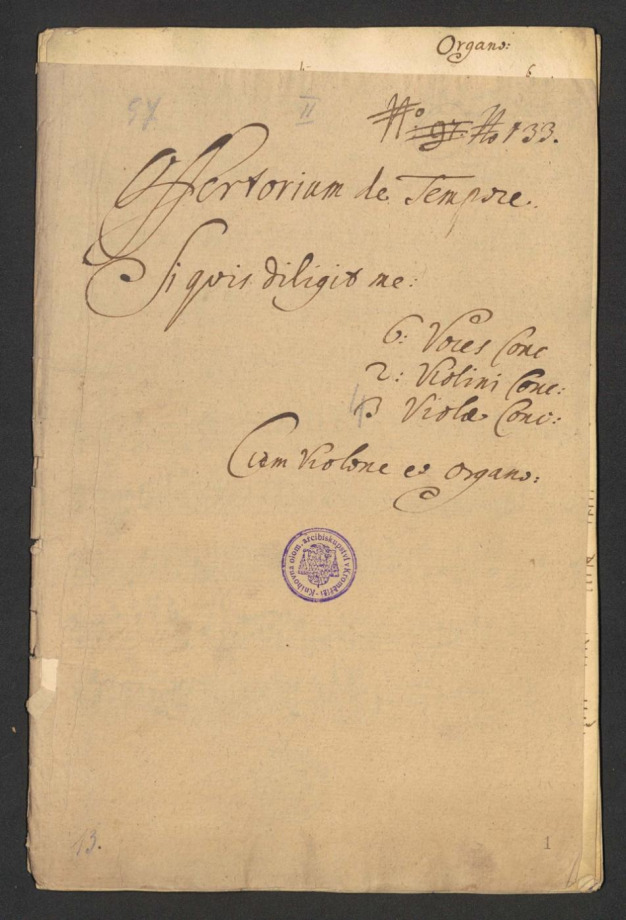 Organo:
6
II
No 91. No 133.
Offertorium de Tempore.
Si quis diligit me:
6: Voces Conc
2: Violini Conc:
3 Violæ Conc:
4
Cum Violone et Organo:
Knihovna olom. arcibiskupství v Kroměříži
13.
1